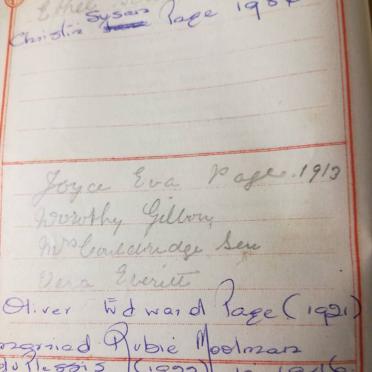 Ethel
Christin Susan Page 19
Joyce Eva Page. 1913
Dorothy Gibbons
Mrs Couldridge Sen
Vera Everitt
Oliver Edward Page (1921)
married Rubie Moolman
du Plessis (1922) in 1946